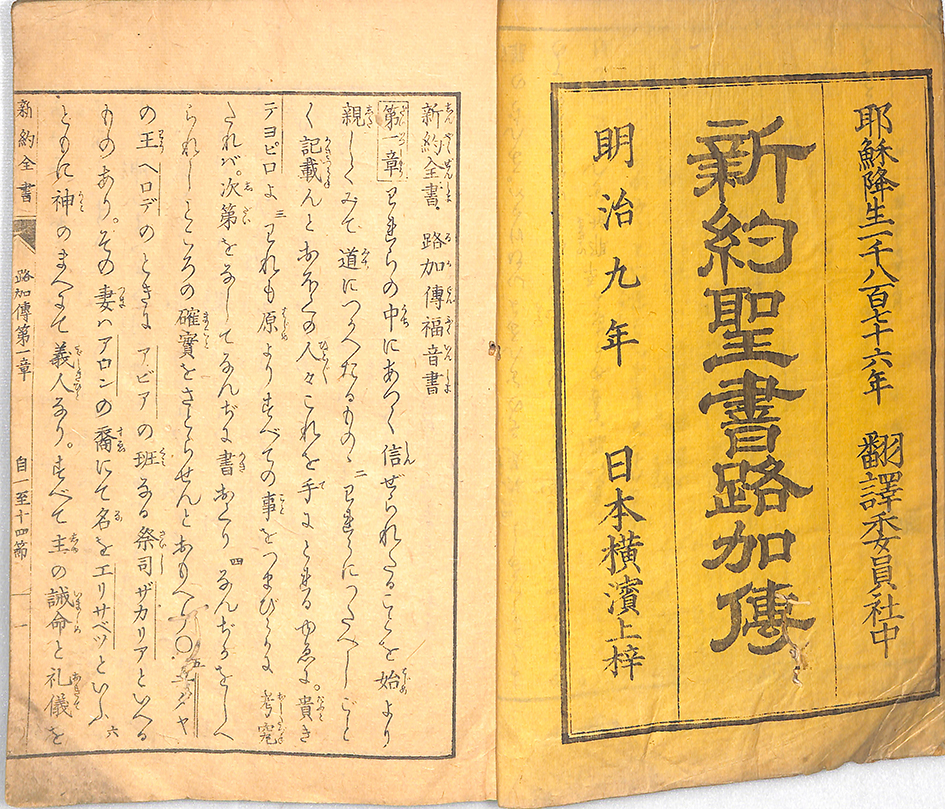 耶穌降生一千八百七十六年 翻譯委員社中
新約聖書路加傳
明治九年 日本橫濱上梓
新約全書 路加傳福音書
第一章 われらの中にあつく信ぜられたることを始より
親しくみて道につかへたるものゝ 二 われらにつたへしごと
く記載んとおほくの人々これを手にとれるゆゑに。貴き
テヨピロよ 三 われも原よりすべての事をつまびらかに考究
たれバ。次第をなしてなんぢに書おくり 四 なんぢがをしへ
られしところの確實をさとらせんとおもへり〇五 ユダヤ
の王ヘロデのときにアビアの班なる祭司ザカリアといへる
ものあり。その妻ハアロンの裔にて名をエリサベツといふ 六
ともに神のまへにて義人なり。すべて主の誡命と礼儀を
新約全書 路加傳第一章 自一至十四節 一